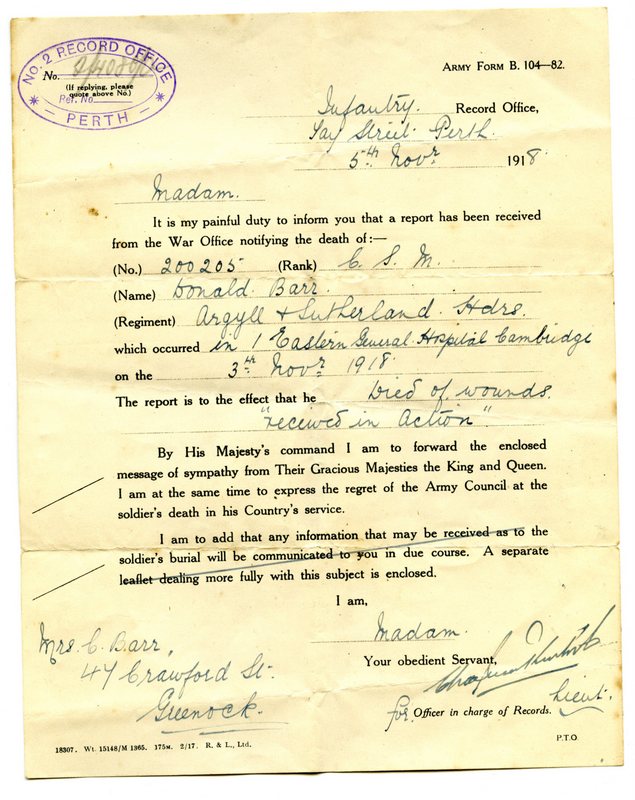 No. 2 RECORD OFFICE
No.
(If replying, please
quote above No.)
Ref. No.
PERTH
ARMY FORM B. 104—82.
Infantry. Record Office,
Tay Street Perth.
5th Novr 1918.
Madam.
It is my painful duty to inform you that a report has been received
from the War Office notifying the death of:—
(No.) 200205 (Rank) C. S. M.
(Name) Donald Barr.
(Regiment) Argyll & Sutherland Hdrs.
which occurred in 1 Eastern General Hospital Cambridge
on the 3rd Novr 1918.
The report is to the effect that he Died of wounds
"received in Action"
By His Majesty's command I am to forward the enclosed
message of sympathy from Their Gracious Majesties the King and Queen.
I am at the same time to express the regret of the Army Council at the
soldier's death in his Country's service.
I am to add that any information that may be received as to the
soldier's burial will be communicated to you in due course. A separate
leaflet dealing more fully with this subject is enclosed.
I am,
Madam.
Your obedient Servant,
Lieut.
for Officer in charge of Records.
Mrs. C. Barr,
47 Crawford St.
Greenock.
18307. Wt. 15148/M 1365. 175M. 2/17. R. & L., Ltd.
P.T.O